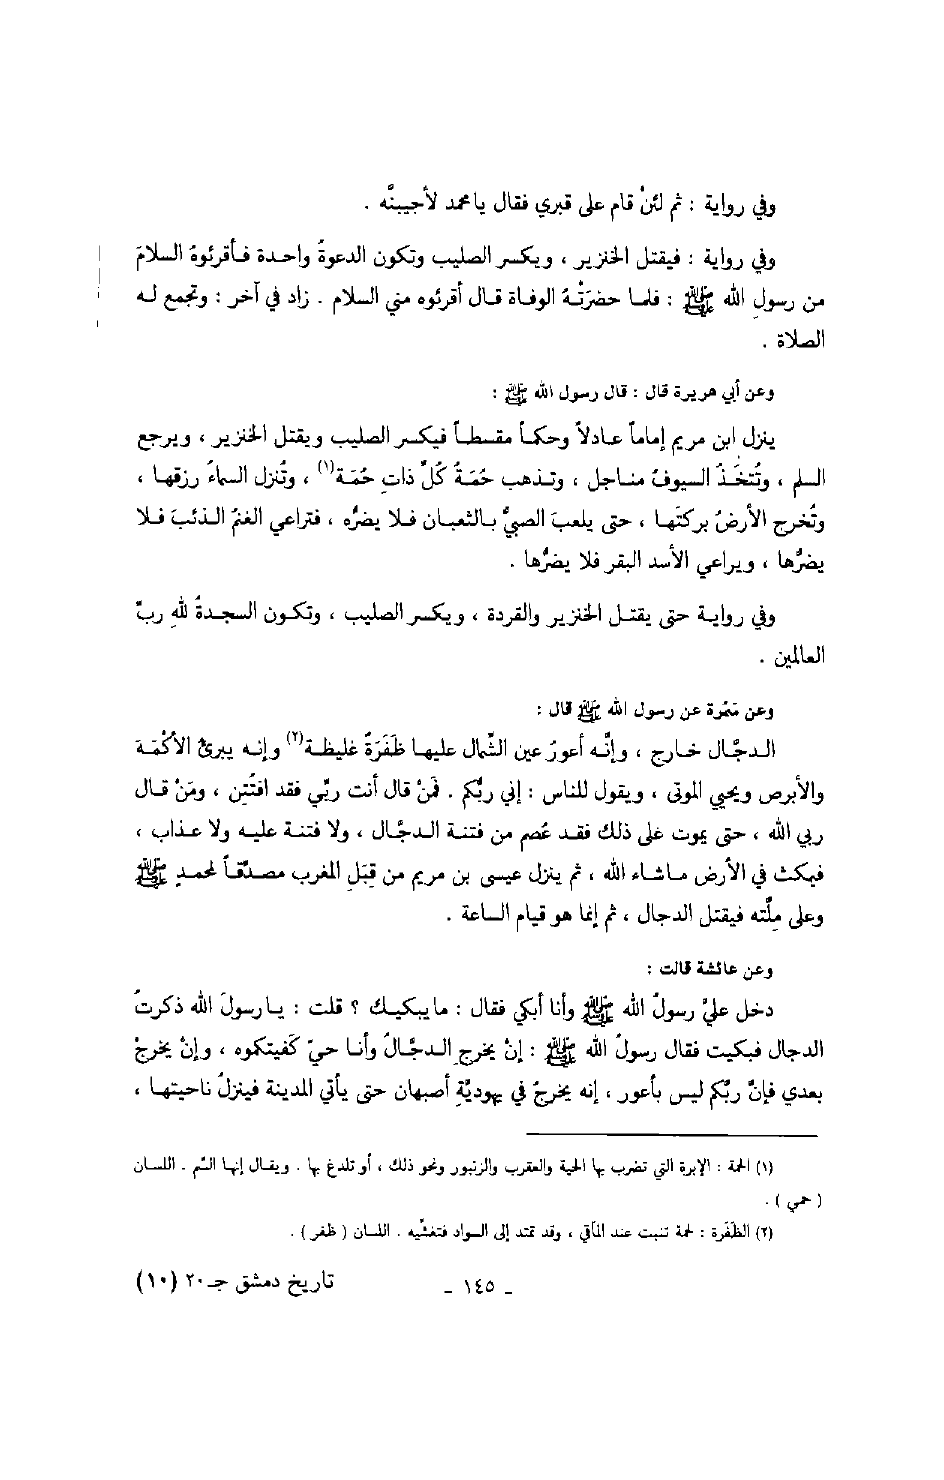 وفي رواية : ثم لئنْ قام على قبري فقال يا محمد لأجيبنَّه .
وفي رواية : فيقتل الخنزير ، ويكسر الصليب وتكون الدعوةُ واحدة فأقرئوهُ السلامَ
من رسولِ الله ﷺ : فلما حضرَتْهُ الوفاة قال أقرئوه مني السلام . زاد في آخر : وتجمع له
الصلاة .
وعن أبي هريرة قال : قال رسول الله ﷺ :
ينزل ابن مريم إماماً عادلاً وحكماً مقسطاً فيكسر الصليب ويقتل الخنزير ، ويرجع
السلم ، وتُتخَذُ السيوفُ مناجل ، وتذهب حُمَةُ كُلِّ ذاتِ حُمَة(١) ، وتُنزل السماءُ رزقها ،
وتُخرج الأرضُ بركتَها ، حتى يلعبَ الصبيُّ بالثعبان فلا يضرُّه ، فتراعي الغنمُ الذئبَ فلا
يضرُّها ، ويراعي الأسد البقر فلا يضرُّها .
وفي رواية حتى يقتل الخنزير والقردة ، ويكسر الصليب ، وتكون السجدةُ للهِ ربِّ
العالمين .
وعن سَمُرة عن رسول الله ﷺ قال :
الدجَّال خارج ، وإنَّه أعورُ عين الشِّمال عليها ظَفَرَةٌ غليظة(٢) وإنه يبرئ الأكْمَهَ
والأبرص ويحيي الموتى ، ويقول للناس : إني ربُّكم . فَمَنْ قال أنت ربِّي فقد افتُتِن ، ومَنْ قال
ربي الله ، حتى يموت على ذلك فقد عُصم من فتنة الدجَّال ، ولا فتنة عليه ولا عذاب ،
فيمكث في الأرض ماشاء الله ، ثم ينزل عيسى بن مريم من قِبَلِ المغرب مصدِّقاً لمحمدٍ ﷺ
وعلى مِلَّته فيقتل الدجال ، ثم إنما هو قيام الساعة .
وعن عائشة قالت :
دخل عليَّ رسولُ الله ﷺ وأنا أبكي فقال : مايبكيك ؟ قلت : يارسولَ الله ذكرتُ
الدجال فبكيت فقال رسولُ الله ﷺ : إنْ يخرجِ الدجَّالُ وأنا حيّ كَفيتكموه ، وإنْ يخرجْ
بعدي فإنَّ ربَّكم ليس بأعور ، إنه يخرجُ في يهوديَّةِ أصبهان حتى يأتي المدينة فينزلُ ناحيتها ،
(١) الحمة : الإبرة التي تضرب بها الحية والعقرب والزنبور ونحو ذلك ، أو تلدغ بها . ويقال إنها السُّم . اللسان
( حمي ) .
(٢) الظَّفَرة : لحمة تنبت عند المآقي ، وقد تمتد إلى السواد فتغشِّيه . اللسان ( ظفر ) .
ـ ١٤٥ ـ
تاريخ دمشق جـ٢٠ (١٠)